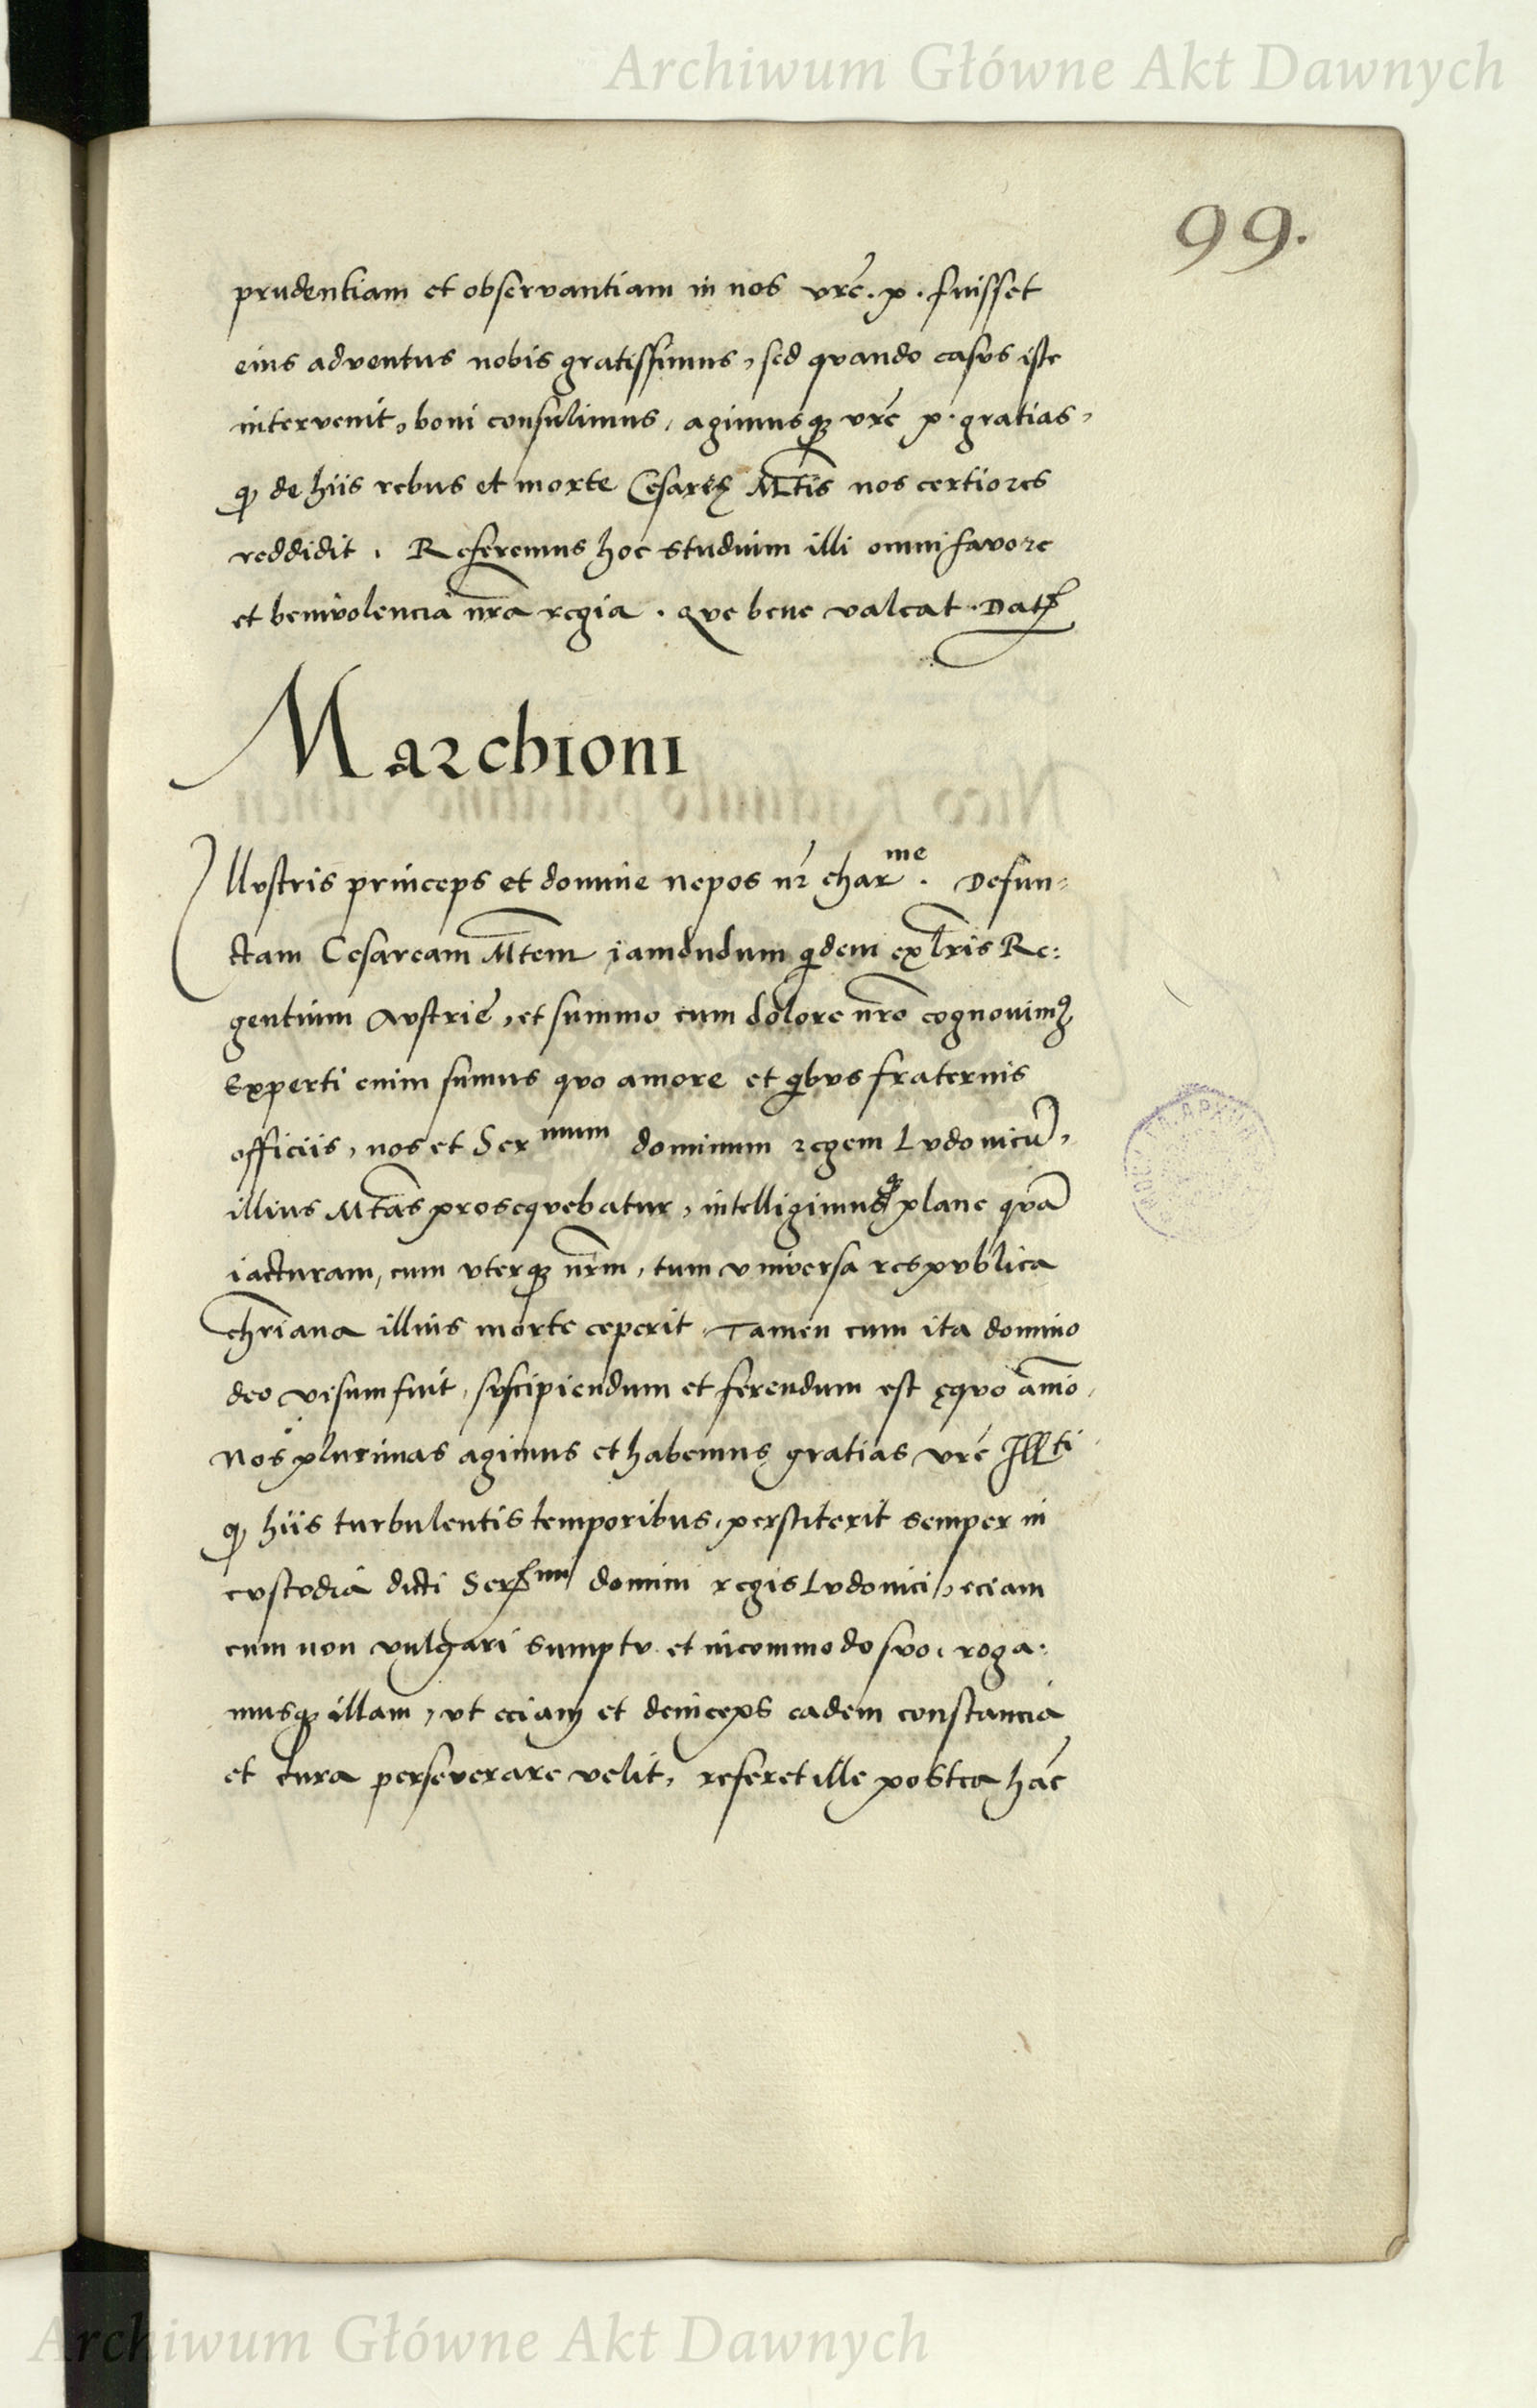 Archiwum Główne Akt Dawnych
99.
prudentiam et observantiam in nos vrẽ. p. fuisset
eius adventus nobis gratissimus, sed qvando casvs iste
intervenit, boni consulimus, agimusqꝫ vrẽ p. gratias,
ꝙ de hiis rebus et morte Cesareę Mtis nos certiores
reddidit. Referemus hoc studium illi omni favore
et benivolencia nr̃a regia. qve bene valeat. Datꝭ
Marchioni
Illvstris princeps et domine nepos nr̃ charme. Defun=
ctam Cesaream Mtem iamdudum qidem ex lr̃is Re:
gentium Avstrię, et summo cum dolore nr̃o cognovimꝰ
Experti enim sumus qvo amore et qibvs fraternis
officiis, nos et Sermum dominum regem Lvdovicũ,
illius Mtas proseqvebatur, intelligimusqꝫ plane qvã
iacturam, cum vterqꝫ nr̃m, tum vniversa respvblica
chr̃iana illius morte ceperit. Tamen cum ita domino
deo visum fuit, svscipiendum et ferendum est ęqvo aĩmo,
Nos plurimas agimus et habemus gratias vrẽ Illti
ꝙ hiis turbulentis temporibus, perstiterit semper in
cvstodia dicti Sermi domini regis Lvdovici, eciam
cum non vulgari sumptv et incommodo svo, roga:
musqꝫ illam, vt eciam et deinceps eadem constancia
et cura perseverare velit, referet ille postea hãc
Archiwum Główne Akt Dawnych